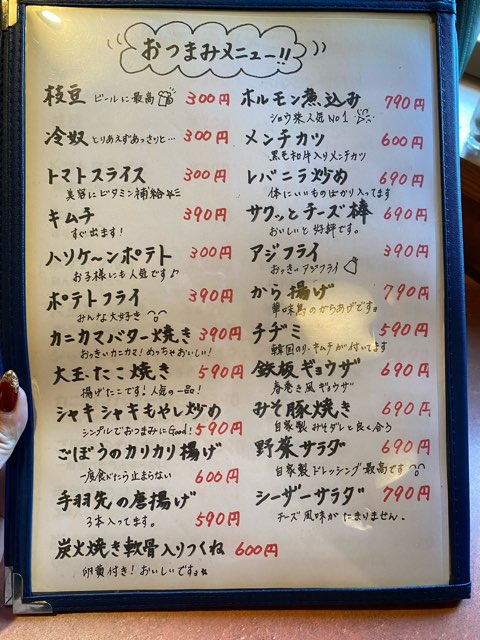 おつまみメニュー!!
枝豆 ビールに最高 300円
冷奴 とりあえずあっさりと… 300円
トマトスライス 300円
美容にビタミン補給
キムチ 390円
すぐ出ます!
ハソゲ〜ンポテト 300円
お子様にも人気です♪
ポテトフライ 390円
みんな大好き
カニカマバター焼き 390円
おっきいカニカマ!めっちゃおいしい!
大王たこ焼き 590円
揚げたこです!人気の一品!
シャキシャキもやし炒め
シンプルでおつまみにGood! 590円
ごぼうのカリカリ揚げ
一度食べたら止まらない 600円
手羽先の唐揚げ
3本入ってます。 590円
炭火焼き軟骨入りつくね 600円
卵黄付き!おいしいです。
ホルモン煮込み 790円
ショウ来人気No1
メンチカツ 600円
黒毛和牛入りメンチカツ
レバニラ炒め 690円
体にいいものばかり入ってます
サクッとチーズ棒 690円
おいしいと好評です。
アジフライ 390円
おっきいアジフライ
から揚げ 790円
華味鳥のからあげです。
チヂミ 590円
韓国のり、キムチが付いてます
鉄板ギョウザ 690円
春巻き風ギョウザ
みそ豚焼き 690円
自家製みそダレと良く合う
野菜サラダ 690円
自家製ドレッシング最高です
シーザーサラダ 790円
チーズ風味がたまりません.